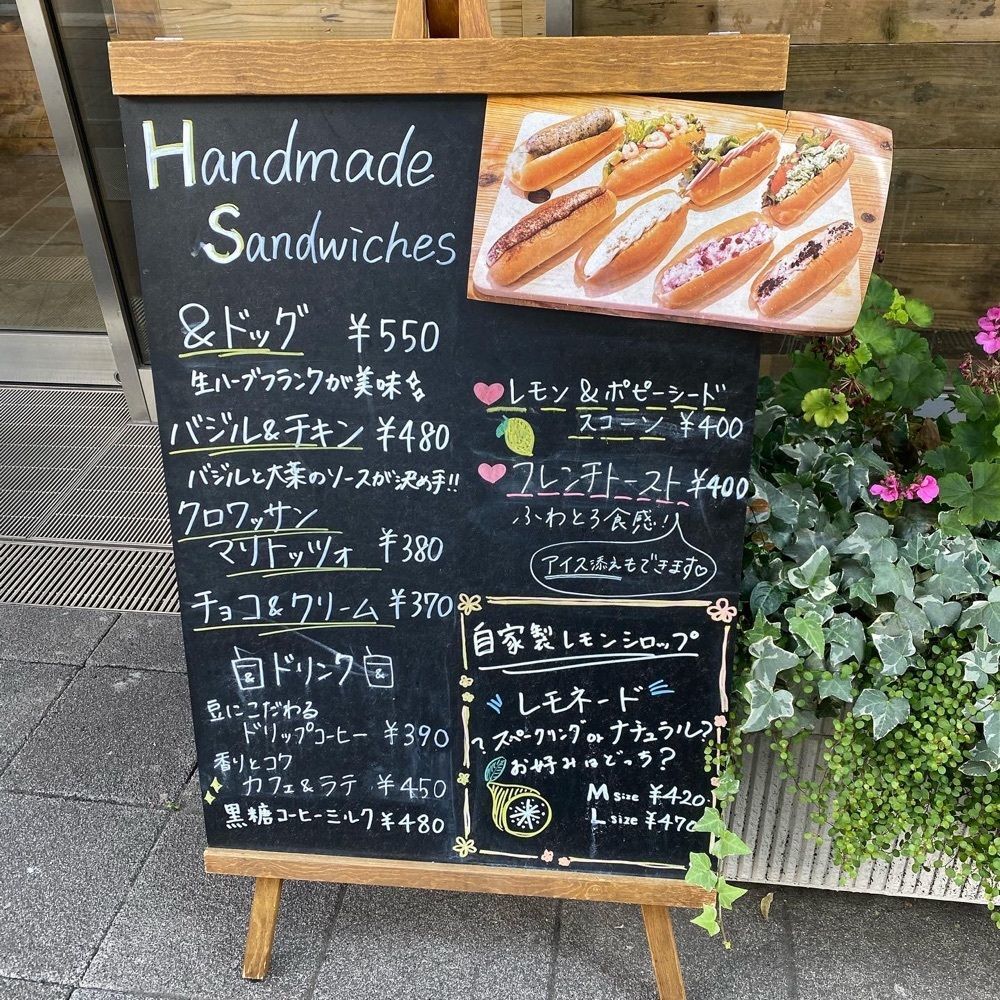 Handmade
Sandwiches
&ドッグ ¥550
生ハーブフランクが美味
バジル&チキン ¥480
バジルと大葉のソースが決め手!!
クロワッサン
マリトッツォ ¥380
チョコ&クリーム ¥370
& ドリンク &
豆にこだわる
ドリップコーヒー ¥390
香りとコク
カフェ&ラテ ¥450
黒糖コーヒーミルク ¥480
レモン&ポピーシード
スコーン ¥400
フレンチトースト ¥400
ふわとろ食感!!
アイス添えもできます♡
自家製レモンシロップ
レモネード
スパークリング or ナチュラル?
お好みはどっち?
M size ¥420
L size ¥470